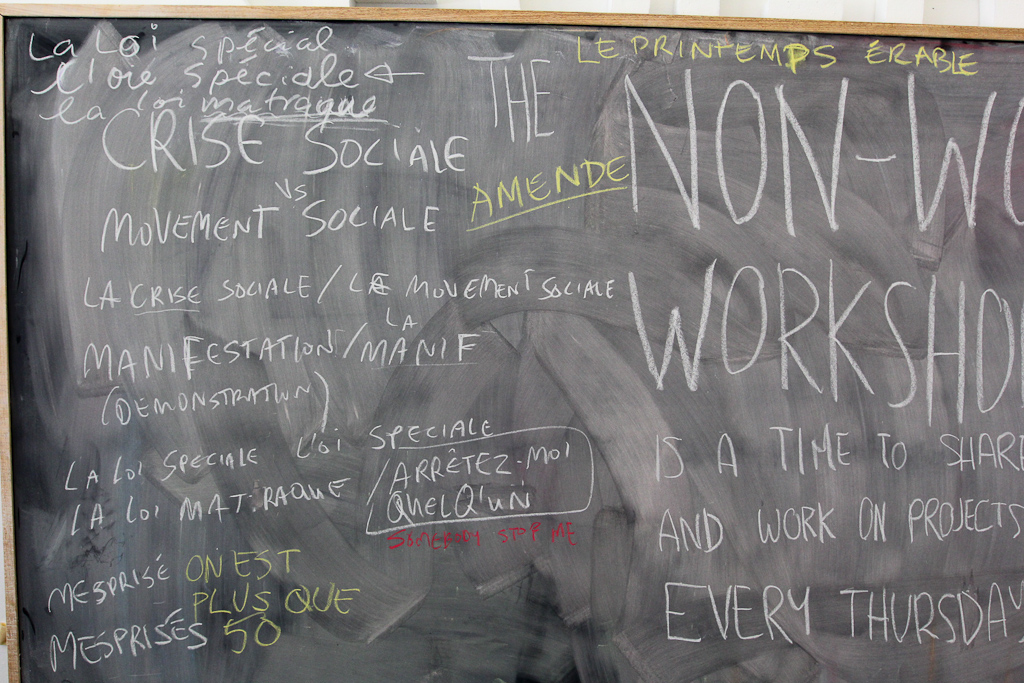 La Loi spécial
l'oie spéciale
la loi matraque
CRISE SOCiALE
Vs
MOVEMENT SOCIALE
LA CRISE SOCIALE / LE MOVEMENT SOCIALE
LA
MANIFESTATION / MANIF
(DEMONSTRATION)
LA LOI SPECIALE L'Oi SPECIALE
LA LOI MATRAQUE
ARRÊTEZ-MOI
QUELQ'UN
SOMEBODY STOP ME
MESPRISÉ
MESPRISÉS
ON EST
PLUS QUE
50
AMENDE
LE PRINTEMPS ÉRABLE
THE
NON-WO
WORKSHO
IS A TIME TO SHARE
AND WORK ON PROJECTS
EVERY THURSDAY